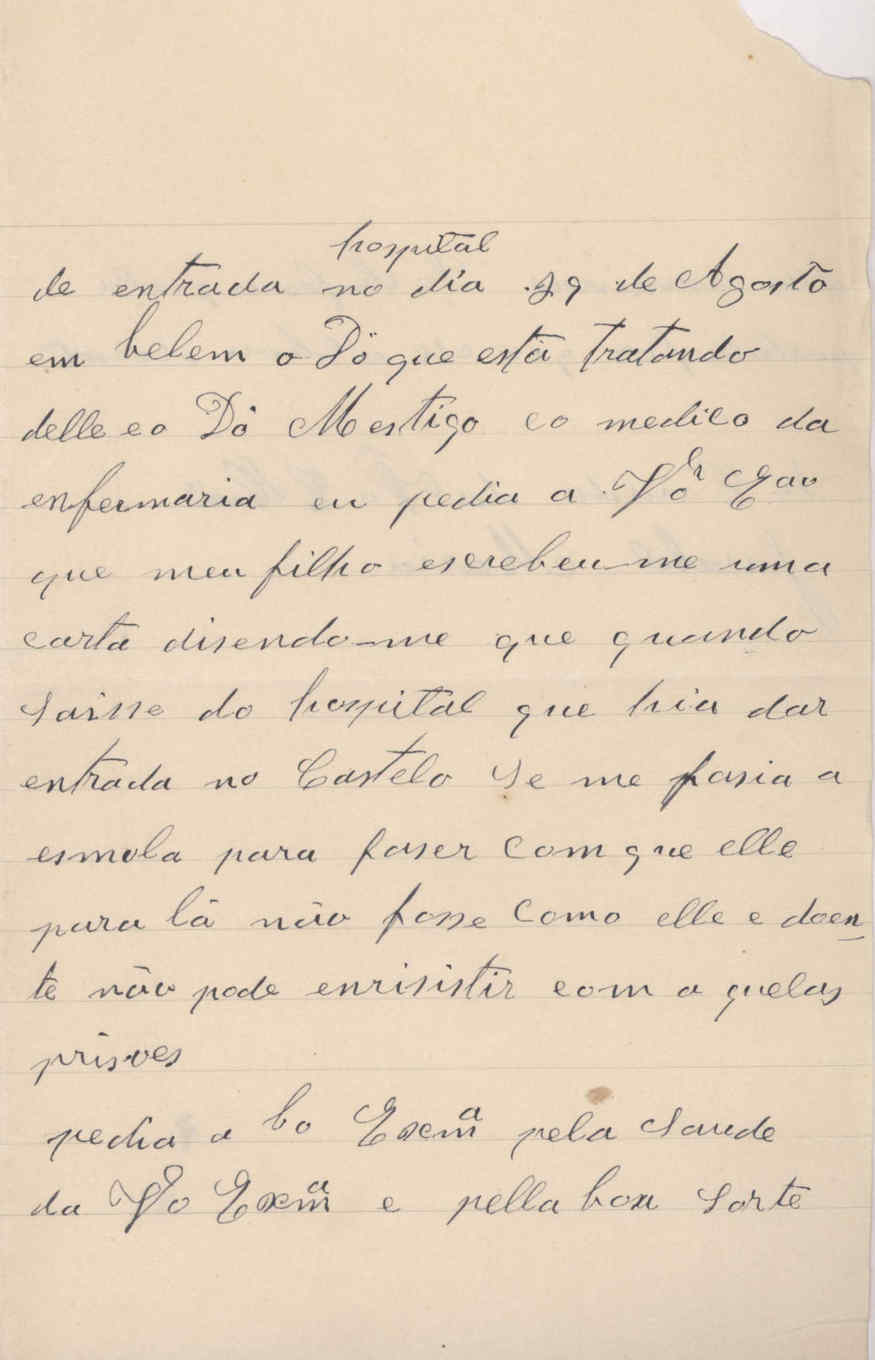 hospital
de entrada no dia 29 de Agosto
em belem o Dô que está tratando
delle e o Dô Mestigo e o medico da
enfermaria eu pedia a Vo
que meu filho escrebeu-me uma
carta disendo-me que quando
saisse do hospital que hia dar
entrada no Castelo Se me fasia a
esmola para faser Com que elle
para lá não fosse Como elle e doen-
te não pode enrisistir com a quelas
prisoes
pedia a bo Exemª pela Saude
da Vo Exemª e pella boa Sorte